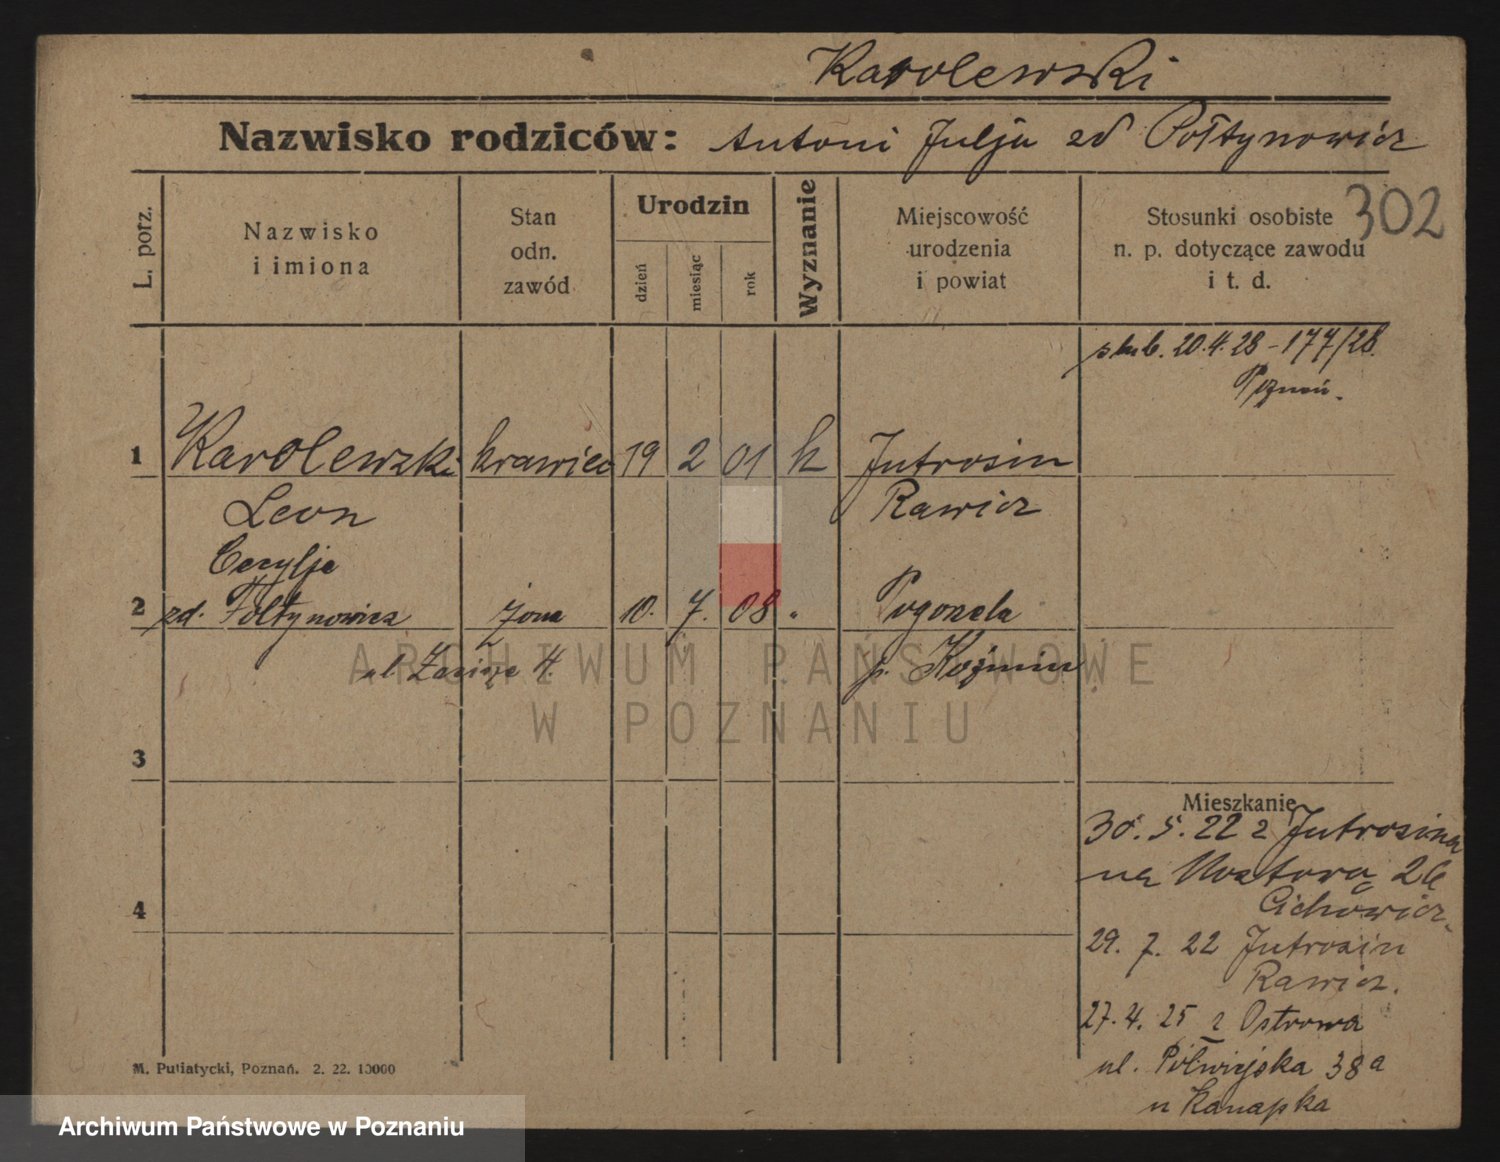 Karolewski
Nazwisko rodziców: Antoni Julja zd Połtynowicz
302
L. porz.
Nazwisko
i imiona
Stan
odn.
zawód
Urodzin
dzień
miesiąc
rok
Wyznanie
Miejscowość
urodzenia
i powiat
Stosunki osobiste
n. p. dotyczące zawodu
i t. d.
ślub. 20.4.28 - 177/28.
Poznań.
1 Karolewski krawiec 19 2 01 k Jutrosin
Leon Rawicz
Cecylja
2 zd. Foltynowicz żona 10. 7. 08 " Pogorzela
ul. Zacisze 4. p. Koźmin
3
Mieszkanie
30. 5. 22 z Jutrosina
na 26
Cichowicz.
4
29. 7. 22 Jutrosin
Rawicz.
27. 4. 25 z Ostrowa
ul. Półwiejska 38a
u Kanapka
M. Putiatycki, Poznań. 2. 22. 10000
ARCHIWUM PAŃSTWOWE
W POZNANIU
Archiwum Państwowe w Poznaniu